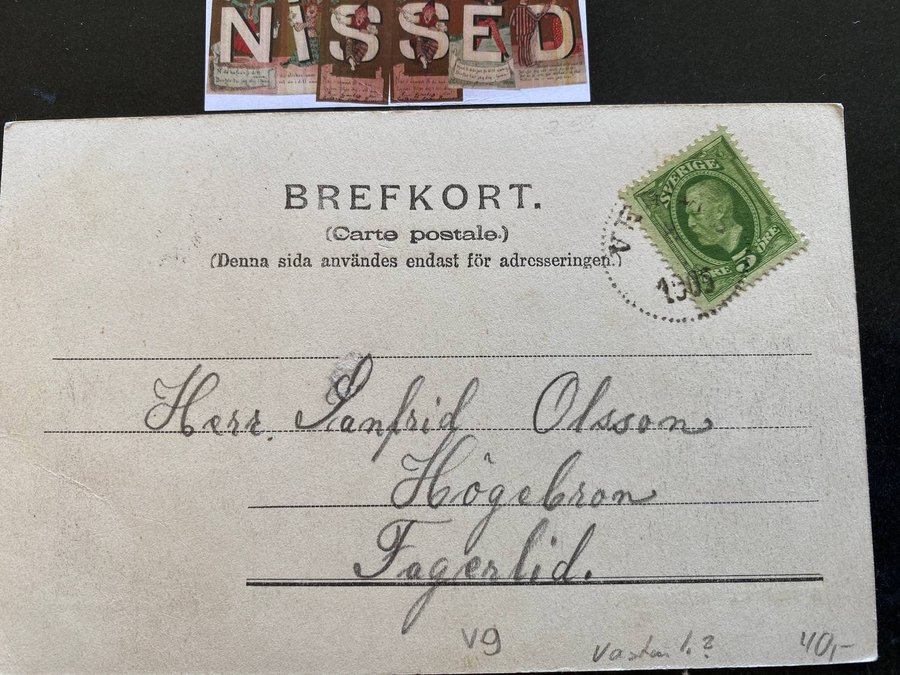 NISSED
BREFKORT.
(Carte postale.)
(Denna sida användes endast för adresseringen.)
SVERIGE
5 ÖRE
1905
Herr. Sanfrid Olsson
Högebron
Fagerlid.
V9
40,-